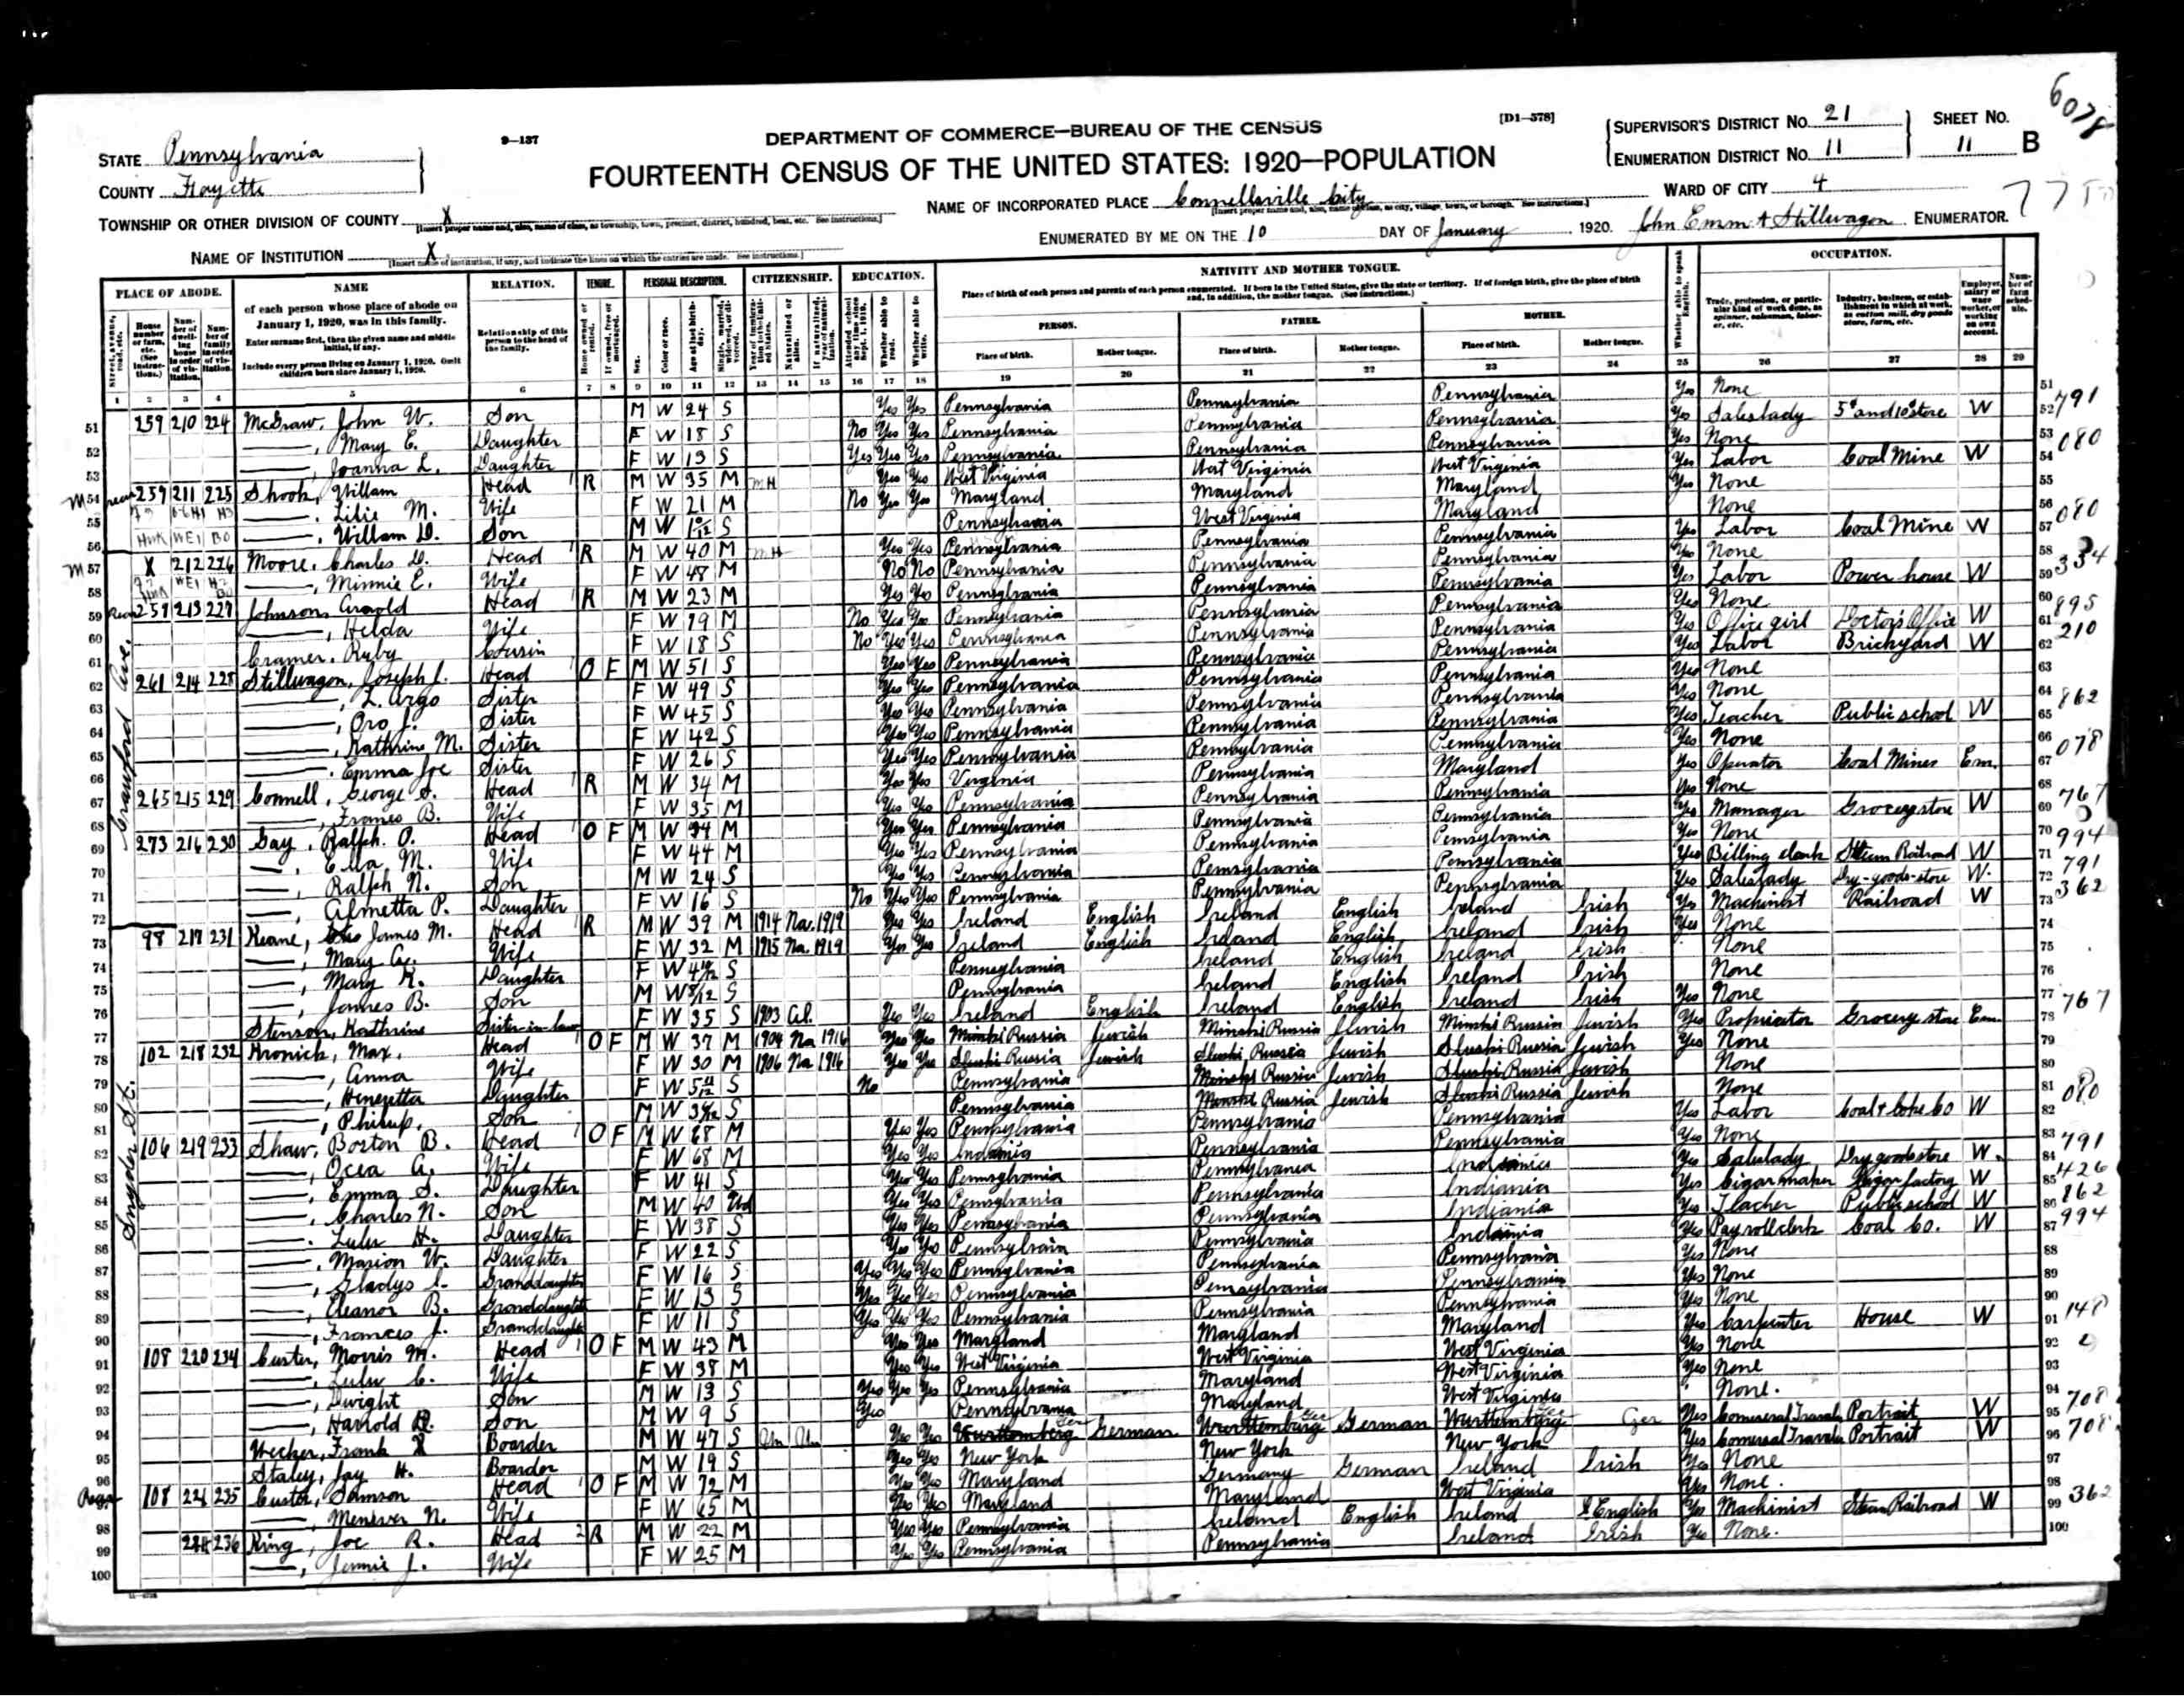 6078
9-137
[D1-578]
DEPARTMENT OF COMMERCE—BUREAU OF THE CENSUS
FOURTEENTH CENSUS OF THE UNITED STATES: 1920—POPULATION
STATE Pennsylvania
COUNTY Fayette
SUPERVISOR'S DISTRICT NO. 21
ENUMERATION DISTRICT NO. 11
SHEET NO. 11 B
TOWNSHIP OR OTHER DIVISION OF COUNTY X
NAME OF INCORPORATED PLACE Connellsville City
WARD OF CITY 4
NAME OF INSTITUTION X
ENUMERATED BY ME ON THE 10 DAY OF January 1920. ENUMERATOR.
PLACE OF ABODE. NAME RELATION. TENURE. PERSONAL DESCRIPTION. CITIZENSHIP. EDUCATION. NATIVITY AND MOTHER TONGUE. OCCUPATION.
of each person whose place of abode on January 1, 1920, was in this family.
Enter surname first, then the given name and middle initial, if any.
Include every person living on January 1, 1920. Omit children born since January 1, 1920.
Relationship of this person to the head of the family.
Place of birth of each person and parents of each person enumerated. If born in the United States, give the state or territory. If of foreign birth, give the place of birth and, in addition, the mother tongue. (See instructions.)
PERSON. FATHER. MOTHER.
Place of birth. Mother tongue. Place of birth. Mother tongue. Place of birth. Mother tongue.
1 2 3 4 5 6 7 8 9 10 11 12 13 14 15 16 17 18 19 20 21 22 23 24 25 26 27 28 29
Crawford Ave.
51 259 210 224 McGraw, John W. Son M W 24 S Yes Yes Pennsylvania Pennsylvania Pennsylvania Yes None
52 —, Mary E. Daughter F W 18 S No Yes Yes Pennsylvania Pennsylvania Pennsylvania Yes Saleslady 5¢ and 10¢ store W 791
53 —, Joanna L. Daughter F W 13 S Yes Yes Yes Pennsylvania Pennsylvania Pennsylvania Yes None
54 rear 259 211 225 Shook, William Head R M W 35 M Yes Yes West Virginia West Virginia West Virginia Yes Labor Coal Mine W 080
55 —, Lilie M. Wife F W 21 M No Yes Yes Maryland Maryland Maryland Yes None
56 —, William D. Son M W S Pennsylvania West Virginia Maryland None
57 X 212 226 Moore, Charles D. Head R M W 40 M Yes Yes Pennsylvania Pennsylvania Pennsylvania Yes Labor Coal Mine W 080
58 —, Minnie E. Wife F W 48 M No No Pennsylvania Pennsylvania Pennsylvania Yes None
59 Rear 213 227 Johnson, Arnold Head R M W 23 M Yes Yes Pennsylvania Pennsylvania Pennsylvania Yes Labor Power house W 334
60 —, Helda Wife F W 19 M No Yes Yes Pennsylvania Pennsylvania Pennsylvania Yes None
61 Cramer, Ruby Cousin F W 18 S No Yes Yes Pennsylvania Pennsylvania Pennsylvania Yes Office girl Doctor's Office W 895
62 261 214 228 Stillwagon, Joseph Head O F M W 51 S Yes Yes Pennsylvania Pennsylvania Pennsylvania Yes Labor Brickyard W 210
63 —, L. Argo Sister F W 49 S Yes Yes Pennsylvania Pennsylvania Pennsylvania Yes None
64 —, Oro J. Sister F W 45 S Yes Yes Pennsylvania Pennsylvania Pennsylvania Yes None
65 —, Kathrine M. Sister F W 42 S Yes Yes Pennsylvania Pennsylvania Pennsylvania Yes Teacher Public school W 862
66 —, Emma Joe Sister F W 26 S Yes Yes Pennsylvania Pennsylvania Pennsylvania Yes None
67 265 215 229 Connell, George S. Head R M W 34 M Yes Yes Virginia Pennsylvania Maryland Yes Operator Coal Mines Em. 078
68 —, Frances B. Wife F W 35 M Yes Yes Pennsylvania Pennsylvania Pennsylvania Yes None
69 273 216 230 Gay, Ralph. O. Head O F M W 44 M Yes Yes Pennsylvania Pennsylvania Pennsylvania Yes Manager Grocery store W 767
70 —, Ella M. Wife F W 44 M Yes Yes Pennsylvania Pennsylvania Pennsylvania Yes None
71 —, Ralph N. Son M W 24 S Yes Yes Pennsylvania Pennsylvania Pennsylvania Yes Billing clerk Steam Railroad W 994
72 —, Almetta P. Daughter F W 16 S No Yes Yes Pennsylvania Pennsylvania Pennsylvania Yes Saleslady Dry-goods-store W. 791
Snyder St.
73 98 217 231 Keane, James M. Head R M W 39 M 1914 Na. 1919 Yes Yes Ireland English Ireland English Ireland Irish Yes Machinist Railroad W 362
74 —, Mary A. Wife F W 32 M 1915 Na. 1919 Yes Yes Ireland English Ireland English Ireland Irish Yes None
75 —, Mary K. Daughter F W S Pennsylvania Ireland English Ireland Irish None
76 —, James B. Son M W S Pennsylvania Ireland English Ireland Irish None
77 Stenson, Kathrine Sister-in-law F W 35 S 1903 Al. Yes Yes Ireland English Ireland English Ireland Irish Yes None
78 102 218 232 Kronick, Max, Head O F M W 37 M 1904 Na 1916 Yes Yes Minski Russia Jewish Minski Russia Jewish Minski Russia Jewish Yes Propriator Grocery store Em. 767
79 —, Anna Wife F W 30 M 1906 Na 1916 Yes Yes Sluski Russia Jewish Sluski Russia Jewish Sluski Russia Jewish Yes None
80 —, Henrietta Daughter F W 5 11/12 S No Pennsylvania Minski Russia Jewish Sluski Russia Jewish None
81 —, Philip, Son M W S Pennsylvania Minski Russia Jewish Sluski Russia Jewish None
82 106 219 233 Shaw, Borton B. Head O F M W 68 M Yes Yes Pennsylvania Pennsylvania Pennsylvania Yes Labor Coal & Coke Co W 080
83 —, Ocea A. Wife F W 68 M Yes Yes Indiania Pennsylvania Pennsylvania Yes None
84 —, Emma S. Daughter F W 41 S Yes Yes Pennsylvania Pennsylvania Indiania Yes Saleslady Dry goods store W. 791
85 —, Charles N. Son M W 40 Wd Yes Yes Pennsylvania Pennsylvania Indiania Yes Cigar maker Cigar factory W 426
86 —, Lulu H. Daughter F W 38 S Yes Yes Pennsylvania Pennsylvania Indiania Yes Teacher Public school W 862
87 —, Marion W. Daughter F W 22 S Yes Yes Pennsylvania Pennsylvania Indiania Yes Payroll clerk Coal Co. W 994
88 —, Gladys Granddaughter F W 16 S Yes Yes Yes Pennsylvania Pennsylvania Pennsylvania Yes None
89 —, Eleanor B. Granddaughter F W 13 S Yes Yes Yes Pennsylvania Pennsylvania Pennsylvania Yes None
90 —, Frances J. Granddaughter F W 11 S Yes Yes Yes Pennsylvania Pennsylvania Pennsylvania Yes None
91 108 220 234 Custer, Morris M. Head O F M W 43 M Yes Yes Maryland Maryland Maryland Yes Carpinter House W 148
92 —, Lulu C. Wife F W 38 M Yes Yes West Virginia West Virginia West Virginia Yes None
93 —, Dwight Son M W 13 S Yes Yes Yes Pennsylvania Maryland West Virginia Yes None
94 —, Harrold R. Son M W 9 S Yes Pennsylvania Maryland West Virginia None.
95 Hecker, Frank Boarder M W 47 S Yes Yes Wurttemberg Ger German Wurttemberg Ger German Wurttemberg Ger Yes Comersal Traveler Portrait W 708
96 Staley, Jay H. Boarder M W 19 S Yes Yes New York New York New York Yes Comersal Traveler Portrait W 708
97 108 221 235 Custer, Samson Head O F M W 72 M Yes Yes Maryland Germany German Ireland Irish Yes None
98 —, Menerver N. Wife F W 65 M Yes Yes Maryland Maryland West Virginia Yes None.
99 236 King, Joe R. Head R M W 22 M Yes Yes Pennsylvania Ireland English Ireland English Yes Machinist Steam Railroad W 362
100 —, Jennie J. Wife F W 25 M Yes Yes Pennsylvania Pennsylvania Ireland Irish Yes None.